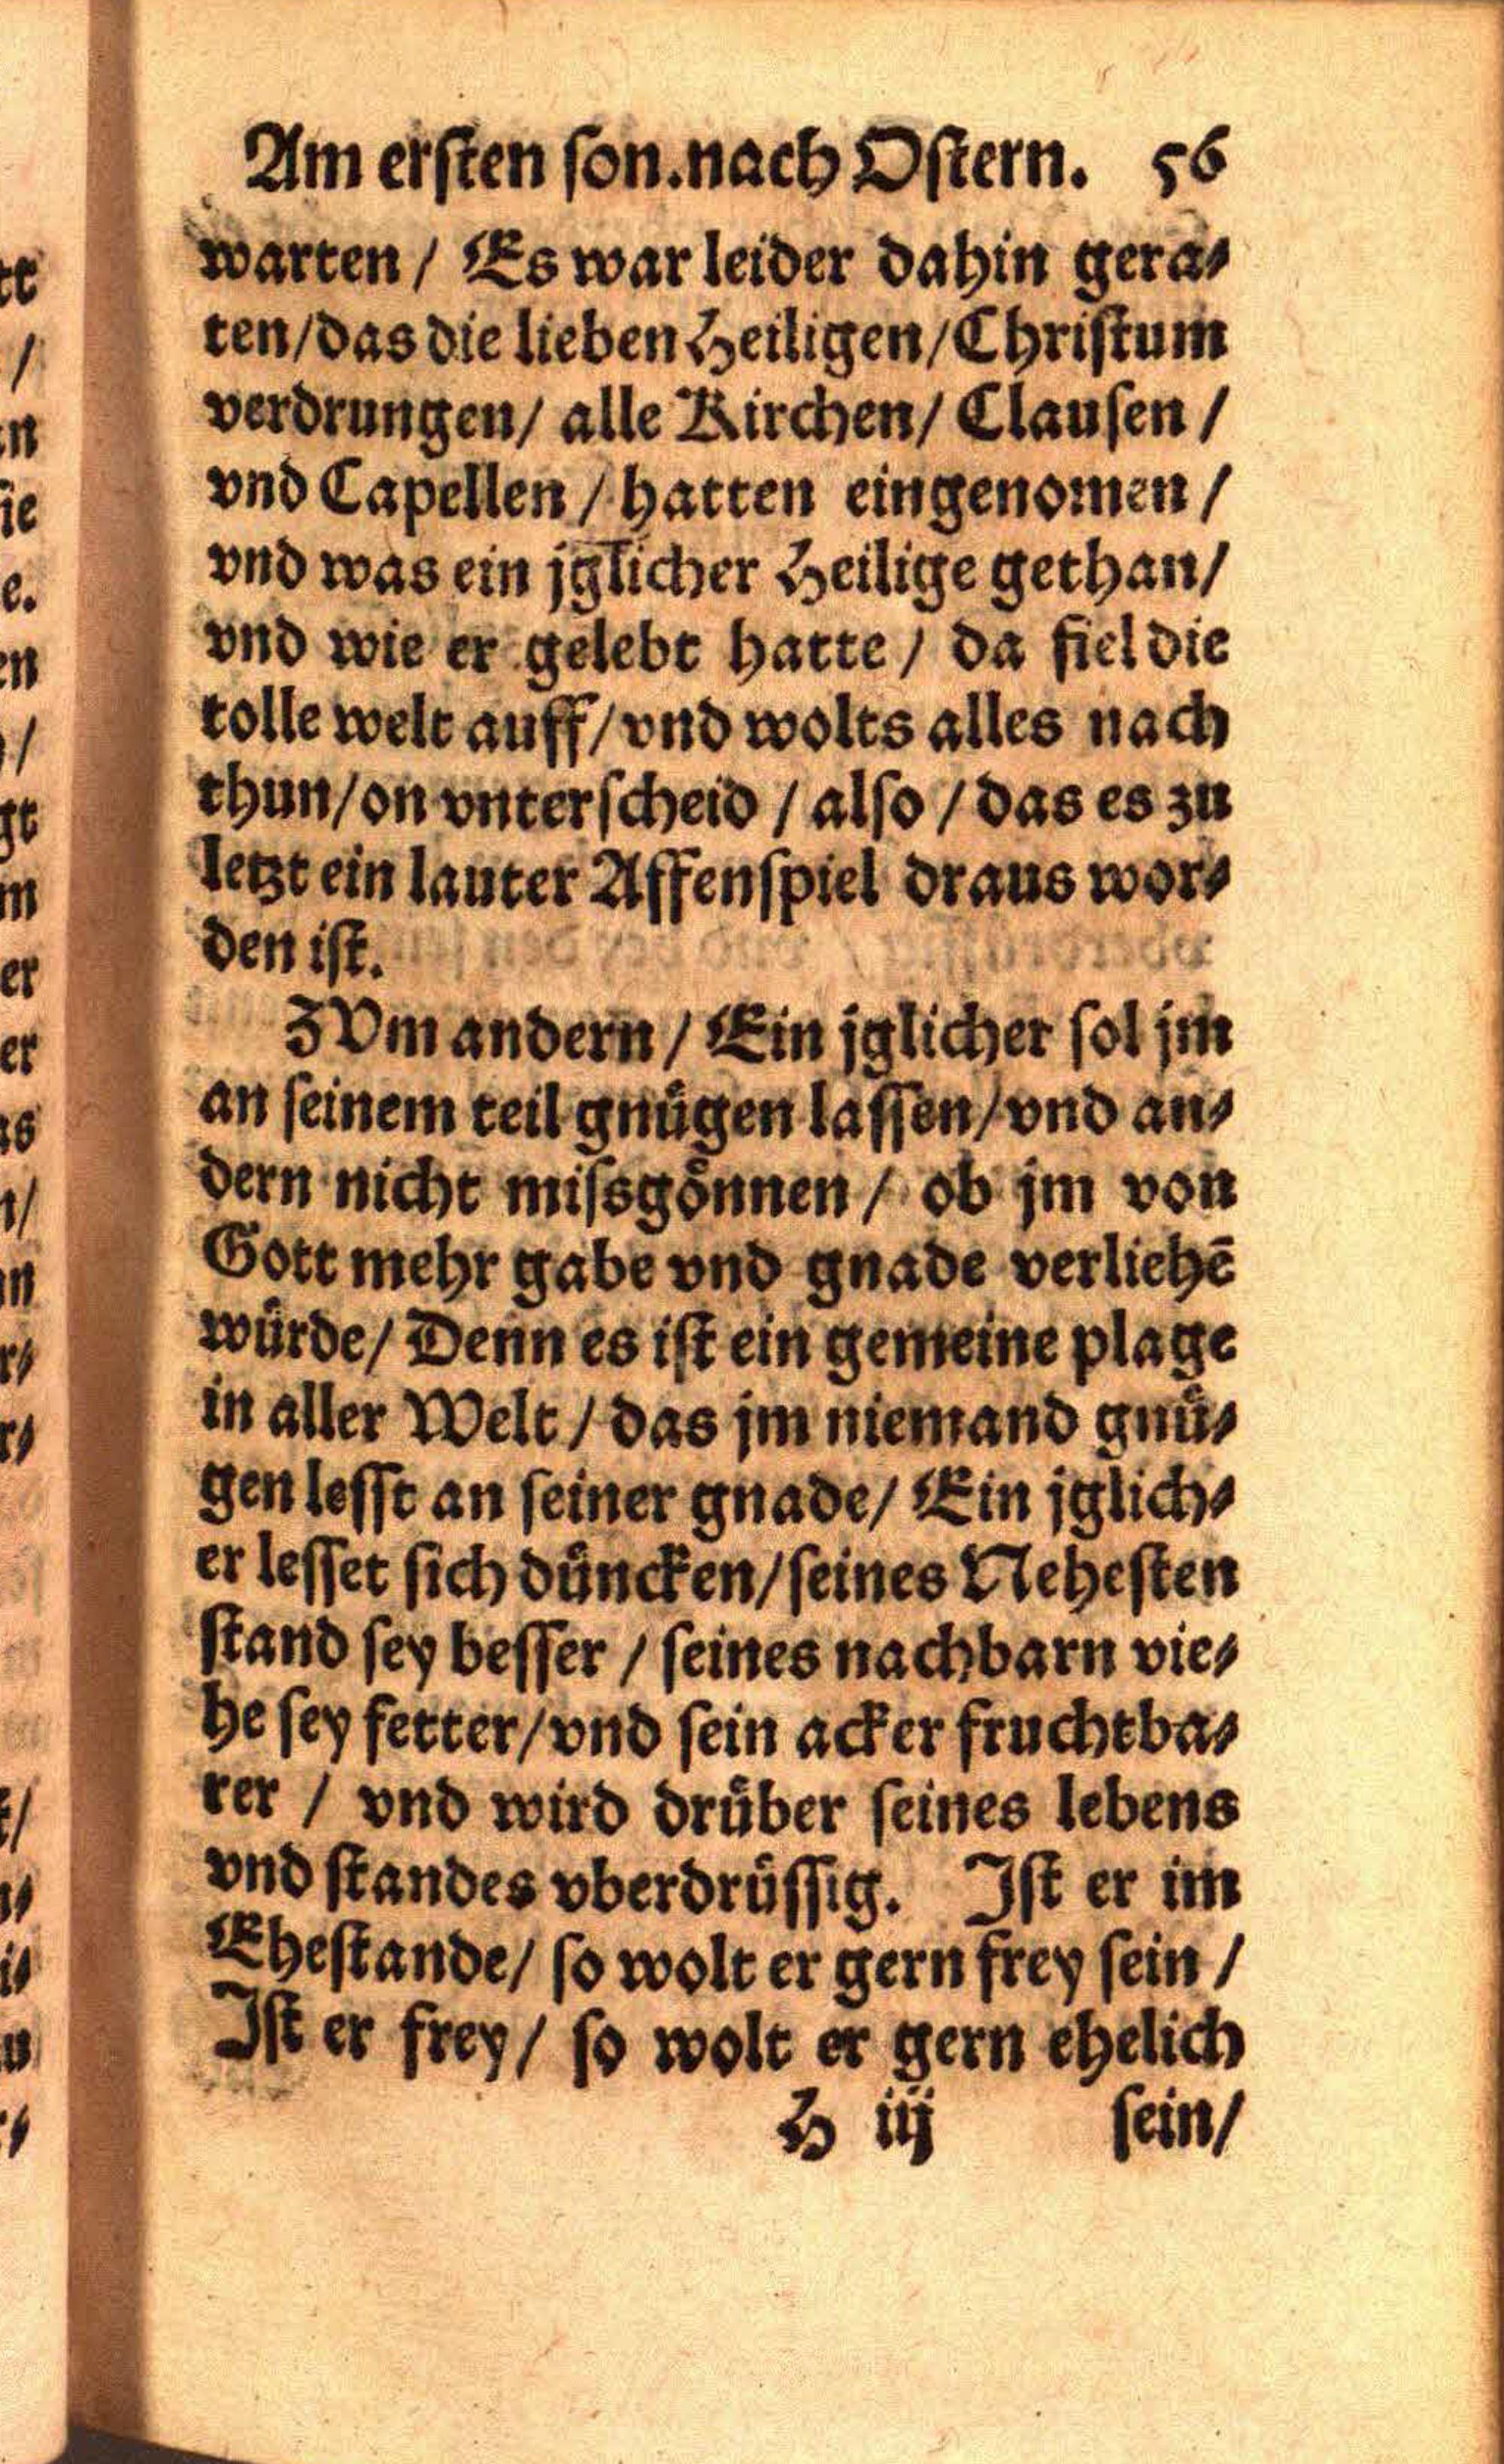 Am erſten ſon. nach Oſtern. 56
warten / Es war leider dahin gera⸗
ten/das die lieben Heiligen/Chriſtum
verdrungen/ alle Kirchen/ Clauſen /
vnd Capellen / hatten eingenomen /
vnd was ein jglicher Heilige gethan/
vnd wie er gelebt hatte / da fiel die
tolle welt auff/vnd wolts alles nach
thun/on vnterſcheid / alſo / das es zu
letzt ein lauter Affenſpiel draus wor⸗
den iſt.
ZVm andern / Ein jglicher ſol jm
an ſeinem teil gnuͤgen laſſen/vnd an⸗
dern nicht miſsgoͤnnen / ob jm von
Gott mehr gabe vnd gnade verliehē
wuͤrde/ Denn es iſt ein gemeine plage
in aller Welt / das jm niemand gnuͤ⸗
gen leſſt an ſeiner gnade/ Ein jglich⸗
er leſſet ſich duͤncken/ſeines Neheſten
ſtand ſey beſſer / ſeines nachbarn vie⸗
he ſey fetter/vnd ſein acker fruchtba⸗
rer / vnd wird druͤber ſeines lebens
vnd ſtandes vberdruͤſſig. Iſt er im
Eheſtande/ ſo wolt er gern frey ſein /
Iſt er frey/ ſo wolt er gern ehelich
H iij ſein/